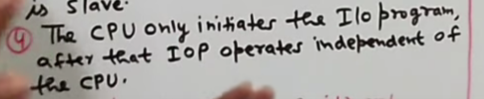 is slave.
④ The CPU only initiates the I/o program,
after that IOP operates independent of
the CPU.